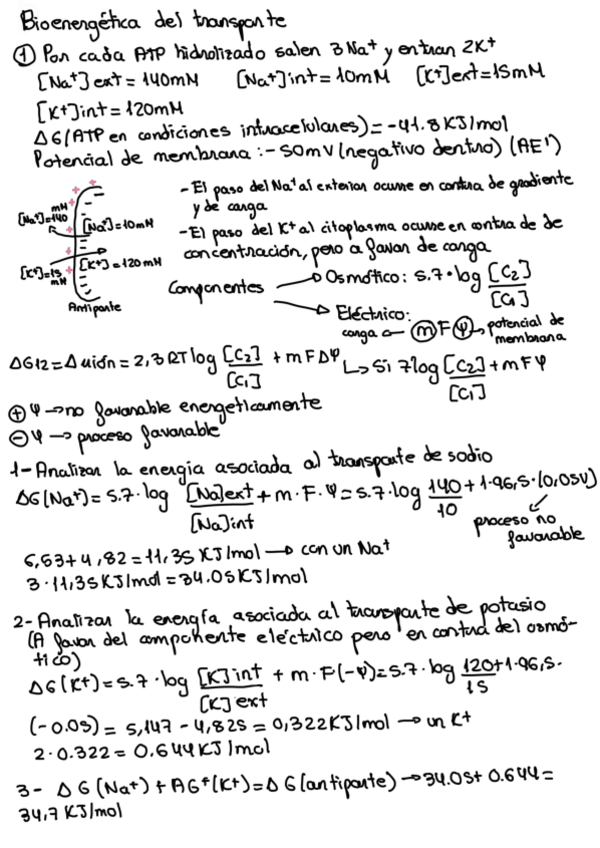 Bioenergética del transporte
① Por cada ATP hidrolizado salen 3Na⁺ y entran 2K⁺
[Na⁺]ext = 140mM [Na⁺]int = 10mM [K⁺]ext = 15mM
[K⁺]int = 120mM
ΔG(ATP en condiciones intracelulares) = -41.8KJ/mol
Potencial de membrana: -50mV (negativo dentro) (ΔE')
mM
[Na⁺]=140
[Na⁺]=10mM
[K⁺]=15
mM
[K⁺]=120mM
Antiporte
- El paso del Na⁺ al exterior ocurre en contra de gradiente
y de carga
- El paso del K⁺ al citoplasma ocurre en contra de de
concentración, pero a favor de carga
Componentes
→ Osmótico: 5.7·log [C₂]/[C₁]
→ Eléctrico:
carga ← m F φ → potencial de
membrana
ΔG12 = Δunión = 2,3RT log [C₂]/[C₁] + mFΔφ ↳ 5,7 log [C₂]/[C₁] + mFφ
⊕ φ → no favorable energeticamente
⊖ φ → proceso favorable
1- Analizar la energia asociada al transporte de sodio
ΔG(Na⁺) = 5.7·log [Na]ext/[Na]int + m·F·φ = 5.7·log 140/10 + 1·96,5·(0,05V)
↙
proceso no
favorable
6,53+4,82 = 11,35 KJ/mol → con un Na⁺
3·11,35KJ/mol = 34.05KJ/mol
2- Analizar la energía asociada al transporte de potasio
(A favor del componente eléctrico pero en contra del osmó-
tico)
ΔG(K⁺) = 5.7·log [K]int/[K]ext + m·F(-φ) = 5.7·log 120/15 + 1·96,5·
(-0.05) = 5,147 - 4,825 = 0,322KJ/mol → un K⁺
2·0.322 = 0.644KJ/mol
3- ΔG(Na⁺) + ΔG⁺(K⁺) = ΔG(antiporte) → 34.05 + 0.644 =
34,7 KJ/mol